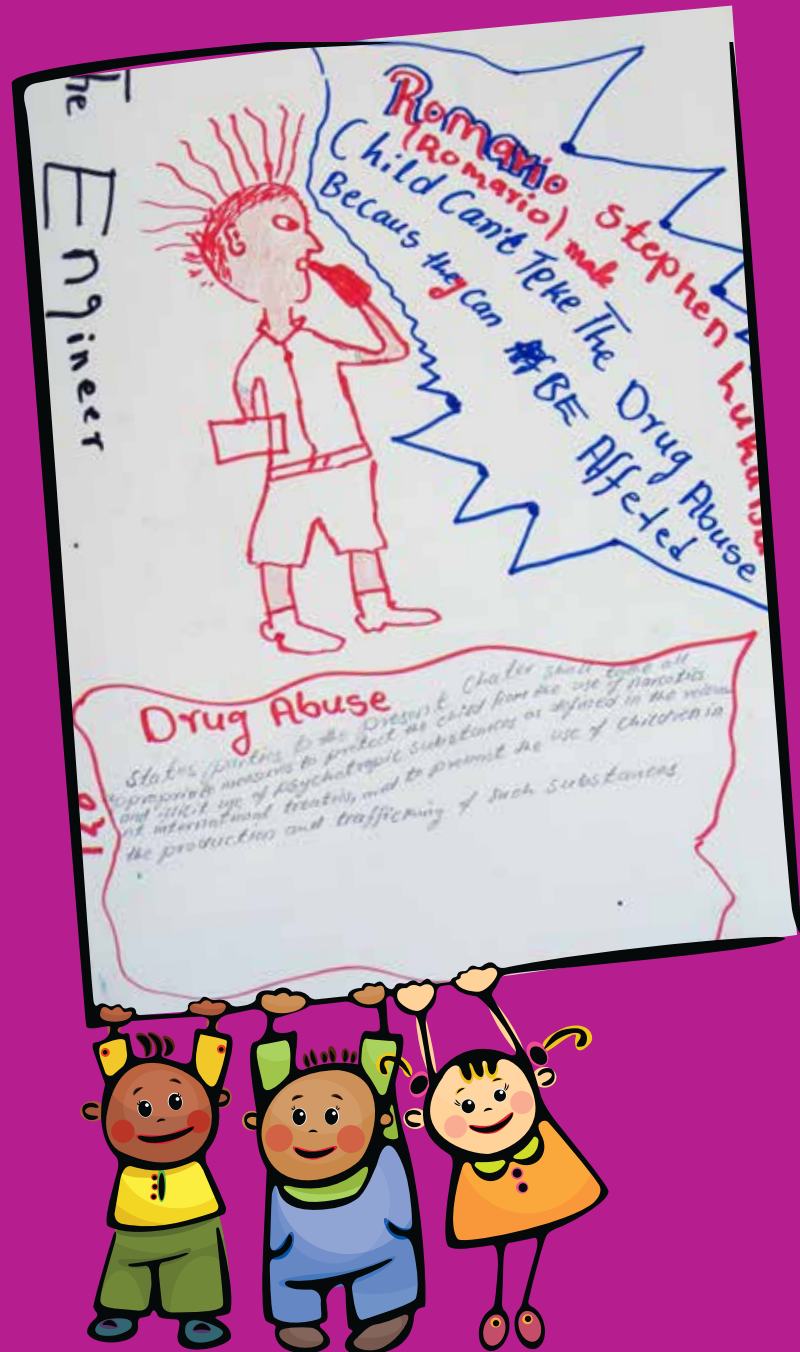 The Engineer
Romario stephen
(Romario) make
Child Can't Teke The Drug Abuse
Becaus they Can BE Affeted
Drug Abuse
States parties to the present Chater shall take all
appropriate measures to protect the child from the use of narcotics
and illicit use of psychotropic substances as defined in the releva
nt international treaties, and to prevent the use of children in
the production and trafficking of such substances